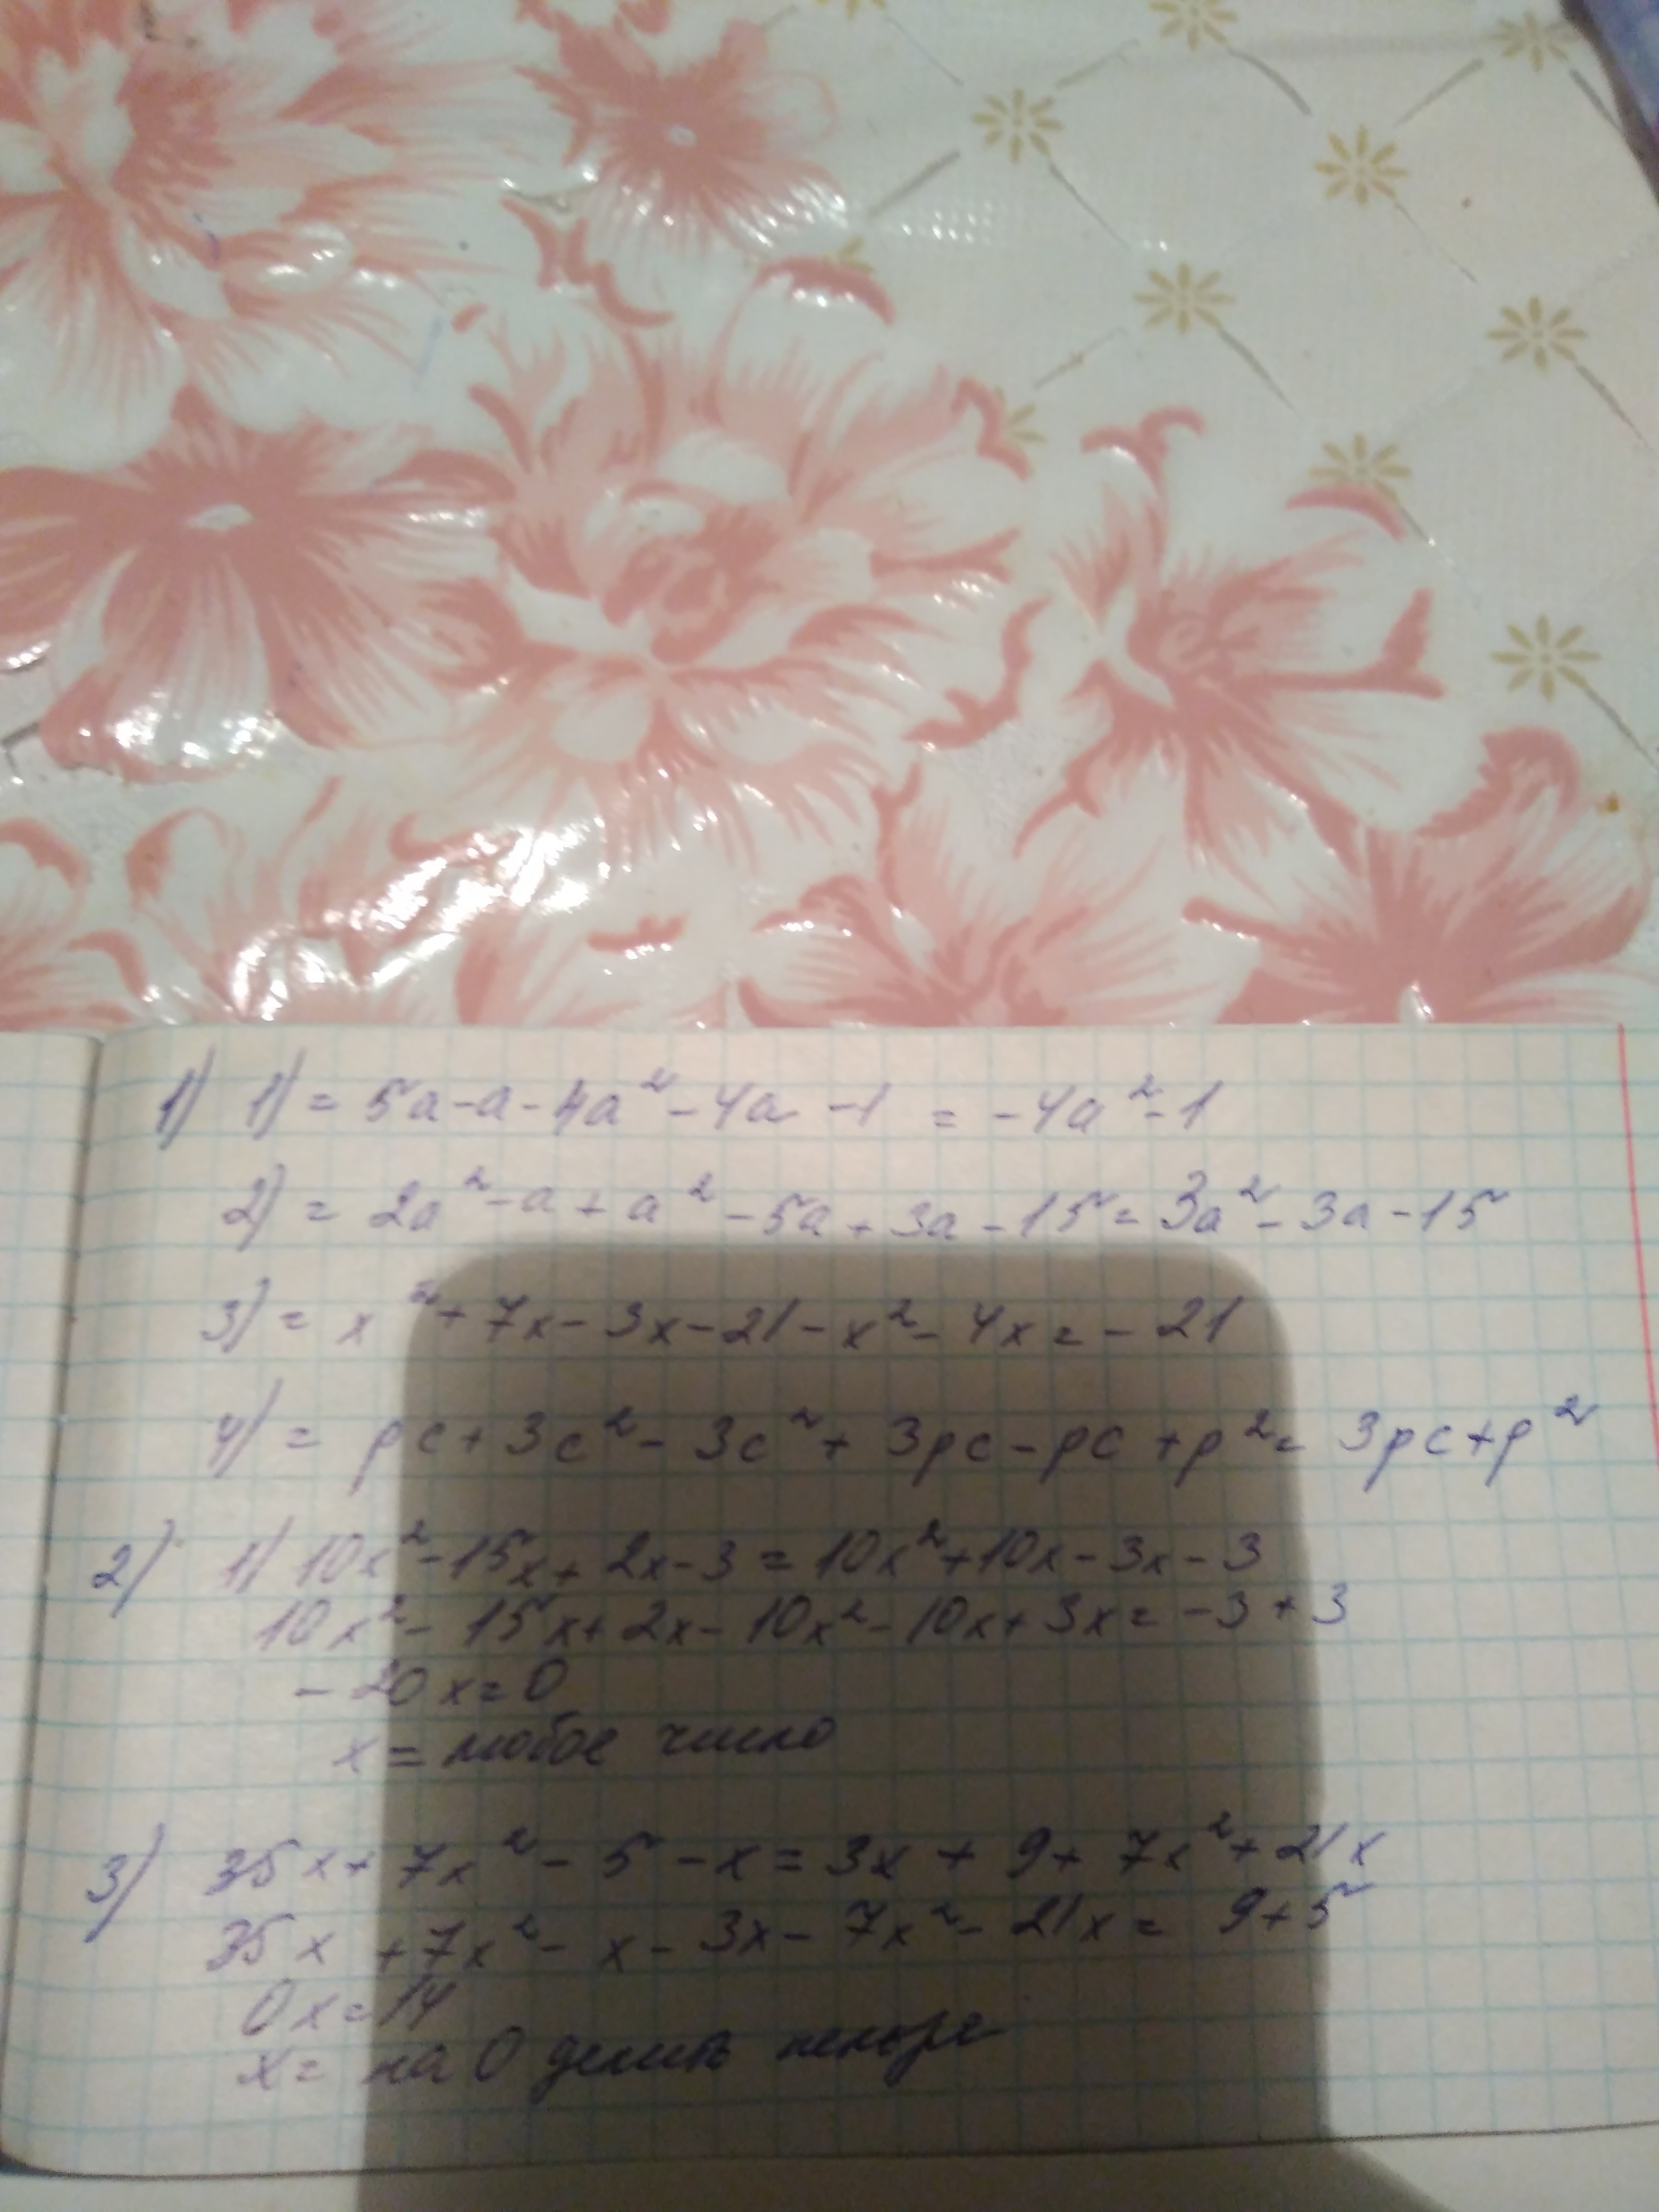 1) 1) = 5a - a - 4a² - 4a - 1 = -4a² - 1
2) = 2a² - a + a² - 5a + 3a - 15 = 3a² - 3a - 15
3) = x² + 7x - 3x - 21 - x² - 4x = - 21
4) = pc + 3c² - 3c² + 3pc - pc + p² = 3pc + p²
2) 1) 10x² - 15x + 2x - 3 = 10x² + 10x - 3x - 3
10x² - 15x + 2x - 10x² - 10x + 3x = -3 + 3
- 20x = 0
x = любое число
3) 35x + 7x² - 5 - x = 3x + 9 + 7x² + 21x
35x + 7x² - x - 3x - 7x² - 21x = 9 + 5
0x = 14
x = на 0 делить нельзя